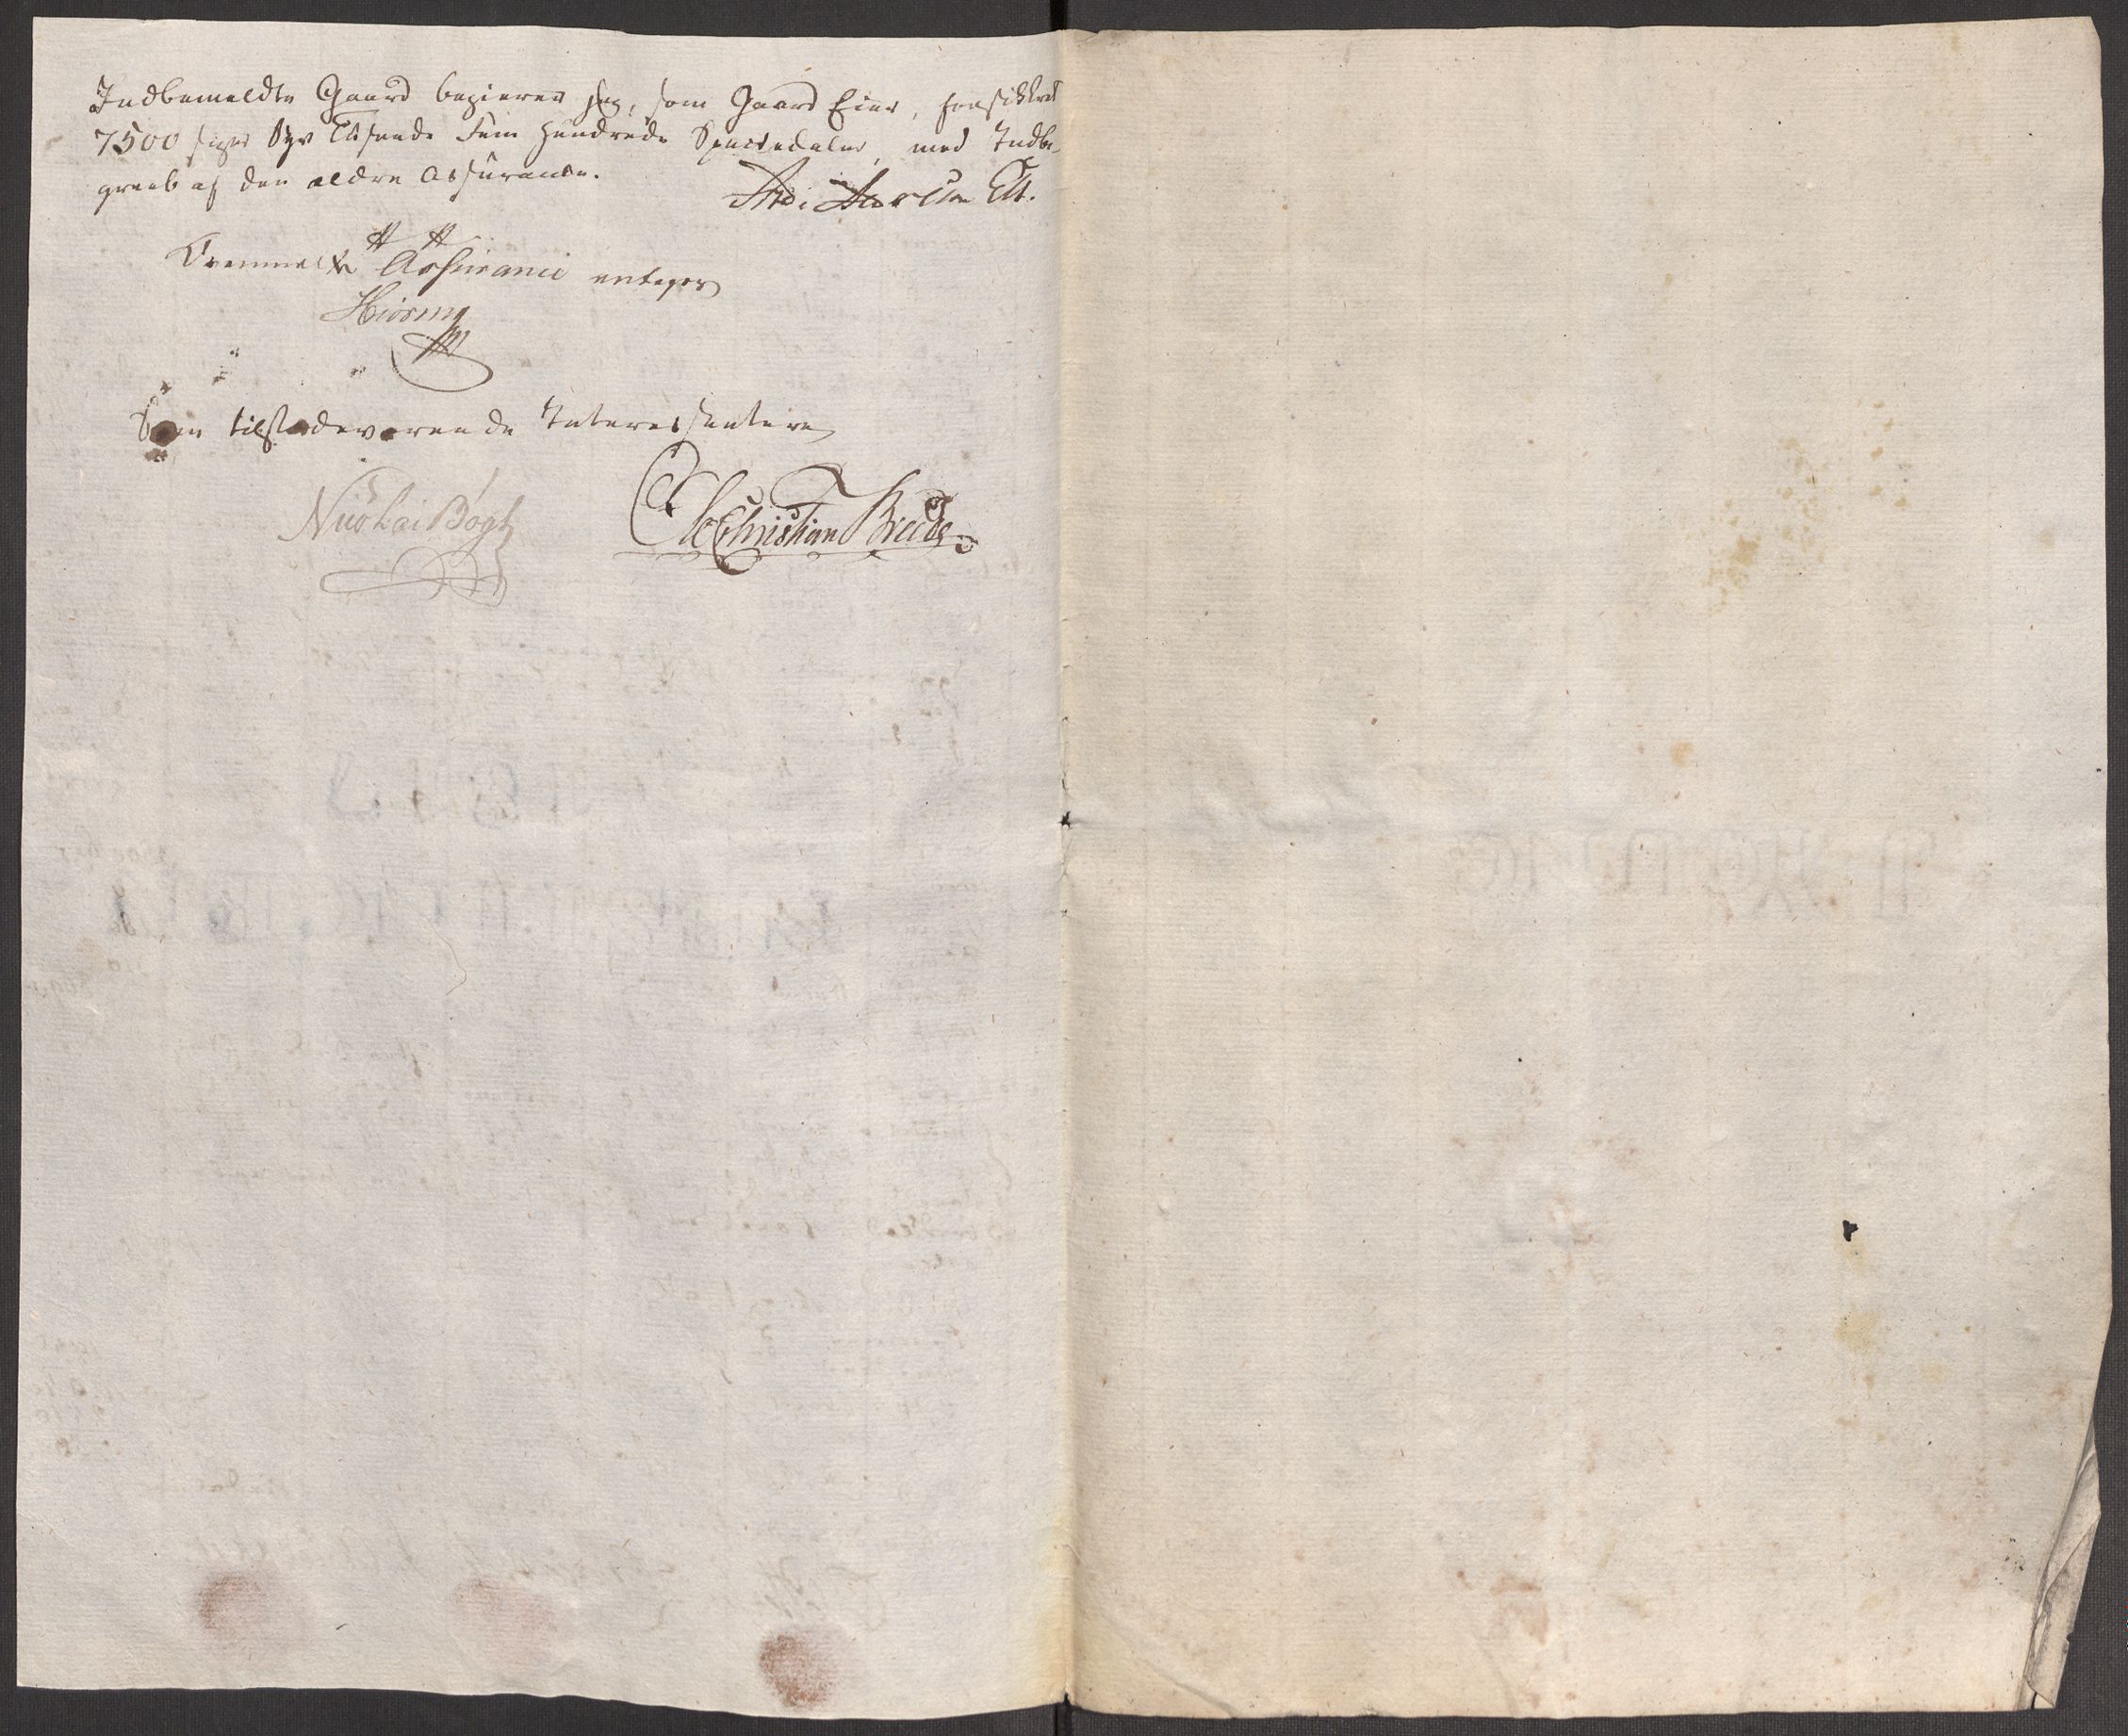 Indbemeldte Gaard begierer jeg, som Gaard Eier, forsikkret
7500 siger Syv Tusende Fem Hundrede Speciedaler, med Indbe-
greeb af den ældre Assurance.
Ovenmeldte Assurance vedtages
Hiorm
Som tilstædeværende Interessentere
Nicolai Bögh
Ole Christian Brede